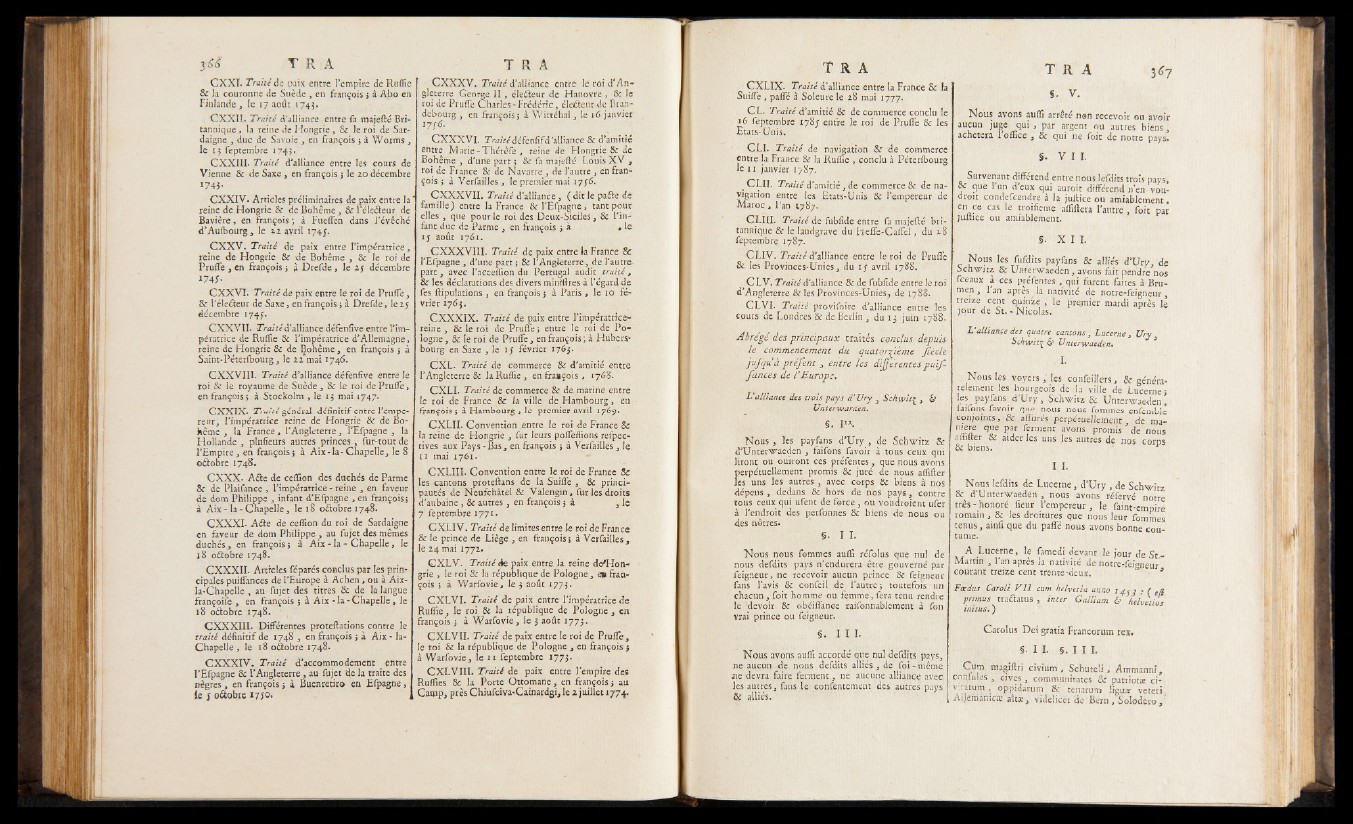 366 T R A
CXXI. Traité de paix entre l'empire de Ruſſie
& la couronne de Suède, en françois; à Abo en
Finlande, le 17 août 1743.
CXXII. Traité d'alliance entre ſa majeſté Bri-
tannique, la reine de Hongrie, & le roi de Sar-
daigne, duc de Savoie, en françois; à Worms,
le 13 ſeptembre 1743.
CXXIII. Traité d'alliance entre les cours de
Vienne & de Saxe, en françois; le 20 décembre
1743.
CXXIV. Articles préliminaires de paix entre la
reine de Hongrie & de Bohême, & l'électeur de
Bavière, en françois; à Fueſſen dans l'évêché
d'Auſbourg, le 22 avril 1745.
CXXV. Traité de paix entre l'impératrice,
reine de Hongrie & de Bohême, & le roi de
Pruſſe, en françois; à Dreſde, le 25 décembre
1745.
CXXVI. Traité de paix entre le roi de Pruſſe,
& l'électeur de Saxe, en françois; à Dreſde, le 25
décembre 1745.
CXXVII. Traité d'alliance défenſive entre l'im-
pératrice de Ruſſie & l'impératrice d'Allemagne,
reine de Hongrie & de Bohême, en françois; à
Saint-Péterſbourg, le 22 mai 1746.
CXXVIII. Traité d'alliance défenſive entre le
roi & le royaume de Suède, & le roi de Pruſſe,
en françois; à Stockolm, le 23 mai 1747.
CXXIX. Traité général définitif entre l'empe-
reur, l'impératrice reine de Hongrie & de Bo-
hême, la France, l'Angleterre, l'Eſpagne, la
Hollande, pluſieurs autres princes, ſur-tout de
l'Empire, en françois; à Aix-la-Chapelle, le 8
octobre 1748.
CXXX. Acte de ceſſion des duchés de Parme
& de Plaiſance, l'impératrice-reine, en faveur
de dom Philippe, infant d'Eſpagne, en françois;
à Aix-la-Chapelle, le 18 octobre 1748.
CXXXI. Acte de ceſſion du roi de Sardaigne
en faveur de dom Philippe, au ſujet des mêmes
duchés, en françois; à Aix-la-Chapelle, le
18 octobre 1748.
CXXXII. Articles ſéparés conclus par les prin-
cipales puiſſances de l'Europe à Achen, ou à Aix-
la-Chapelle, au ſujet des titres & de la langue
françoiſe, en françois; à Aix-la-Chapelle, le
18 octobre 1748.
CXXXIII. Différentes proteſtations contre le
traité définitif de 1748, en françois; à Aix-la-
Chapelle, le 18 octobre 1748.
CXXXIV. Traité d'accommodement entre
l'Eſpagne & l'Angleterre, au ſujet de la traite des
nègres, en françois; à Buenretiro en Eſpagne,
le 5 octobre 1750.
T R A
CXXXV. Traité d'alliance entre le roi d'An-
gleterre George II, électeur de Hanovre, & le
roi de Pruſſe Charles-Frédéric, électeur de Bran-
debourg, en françois; à Wittehal, le 16 janvier
1756.
CXXXVI. Traité défenſif d'alliance & d'amitié
entre Marie-Thérèſe, reine de Hongrie & de
Bohême, d'une part; & ſa majeſté Louis XV,
roi de France & de Navarre, de l'autre, en fran-
çois; à Verſailles, le premier mai 1756.
CXXXVII. Traité d'alliance, (dit le pacte de
famille) entre la France & l'Eſpagne, tant pour
elles, que pour le roi des Deux-Siciles, & l'in-
fant duc de Parme, en françois; à , le
15 août 1761.
CXXXVIII. Traité de paix entre la France &
l'Eſpagne, d'une part; & l'Angleterre, de l'autre
part, avec l'acceſſion du Portugal audit traité,
& les déclarations des divers miniſtres à l'égard de
ſes ſtipulations, en françois; à Paris, le 10 fé-
vrier 1763.
CXXXIX. Traité de paix entre l'impératrice-
reine, & le roi de Pruſſe; entre le roi de Po-
logne, & le roi de Pruſſe, en françois; à Hubers-
bourg en Saxe, le 15 février 1763.
CXL. Traité de commerce & d'amitié entre
l'Angleterre & la Ruſſie, en françois, 1766.
CXLI. Traité de commerce & de marine entre
le roi de France & la ville de Hambourg, en
françois; à Hambourg, le premier avril 1769.
CXLII. Convention entre le roi de France &
la reine de Hongrie, ſur leurs poſſeſſions reſpec-
tives aux Pays-Bas, en françois; à Verſailles, le
11 mai 1761.
CXLIII. Convention entre le roi de France &
les cantons proteſtans de la Suiſſe, & princi-
pautés de Neufchâtel & Valengin, ſur les droits
d'aubaine, & autres, en françois; à , le
7 ſeptembre 1771.
CXLIV. Traité de limites entre le roi de France
& le prince de Liège, en françois; à Verſailles,
le 24 mai 1772.
CXLV. Traité de paix entre la reine de Hon-
grie, le roi & la république de Pologne, en fran-
çois; à Warſovie, le 3 août 1773.
CXLVI. Traité de paix entre l'impératrice de
Ruſſie, le roi & la république de Pologne, en
françois; à Warſovie, le 3 août 1773.
CXLVII. Traité de paix entre le roi de Pruſſe,
le roi & la république de Pologne, en françois;
à Warſovie, le 11 ſeptembre 1773.
CXLVIII. Traité de paix entre l'empire des
Ruſſies & la Porte Ottomane, en françois; au
Camp, près Chiuſciva-Caïnardgi, le 2 juillet 1774.
T R A
CXLIX. Traité d'alliance entre la France & la
Suiſſe, paſſé à Soleure le 28 mai 1777.
CL. Traité d'amitié & de commerce conclu le
16 ſeptembre 1785 entre le roi de Pruſſe & les
Etats-Unis.
CLI. Traité de navigation & de commerce
entre la France & la Ruſſie, conclu à Péterſbourg
le 11 janvier 1787.
CLII. Traité d'amitié, de commerce & de na-
vigation entre les Etats-Unis & l'empereur de
Maroc, l'an 1787.
CLIII. Traité de ſubſide entre ſa majeſté bri-
tannique & le landgrave du Heſſe-Caſſel, du 28
ſeptembre 1787.
CLIV. Traité d'alliance entre le roi de Pruſſe
& les Provinces-Unies, du 15 avril 1788.
CLV. Traité d'alliance & de ſubſide entre le roi
d'Angleterre & les Provinces-Unies, de 1788.
CLVI. Traité proviſoire d'alliance entre les
cours de Londres & de Berlin, du 13 juin 1788.
Abrégé des principaux traités conclus depuis
le commencement du quatorzieme ſiecle
juſqu'à préſent, entre les différentes puiſ-
ſances de l'Europe.
L'alliance des trois pays d'Ury, Schwitz, &
Unterwarnen.
§. Ier.
Nous, les payſans d'Ury, de Schwitz &
d'Unterwaeden, faiſons ſavoir à tous ceux qui
liront ou ouiront ces préſentes, que nous avons
perpétuellement promis & juré de nous aſſiſter
les uns les autres, avec corps & biens à nos
dépens, dedans & hors de nos pays, contre
tous ceux qui uſent de force, ou voudroient uſer
à l'endroit des perſonnes & biens de nous ou
des nôtres.
§. II.
Nous nous ſommes auſſi réſolus que nul de
nous deſdits pays n'endurera être gouverné par
ſeigneur, ne recevoir aucun prince & ſeigneur
ſans l'avis & conſeil de l'autre; toutefois un
chacun, ſoit homme ou femme, ſera tenu rendre
le devoir & obéiſſance raiſonnablement à ſon
vrai prince ou ſeigneur.
§. III.
Nous avons auſſi accordé que nul deſdits pays,
ne aucun de nous deſdits alliés, de ſoi-même
ne devra faire ſerment, ne aucune alliance avec
les autres, ſans le conſentement des autres pays
& alliés.
T R A 367
§. V.
Nous avons auſſi arrêté non recevoir ou avoir
aucun juge qui, par argent ou autres biens,
achetera l'office, & qui ne ſoit de notre pays.
§. VII.
Survenant différend entre nous leſdits trois pays,
& que l'un d'eux qui auroit différend n'en vou-
droit condeſcendre à la juſtice ou amiablement,
en ce cas le troiſieme aſſiſtera l'autre, ſoit par
juſtice ou amiablement.
§. XII.
Nous les ſuſdits payſans & alliés d'Ury, de
Schwitz & Unterwaeden, avons fait pendre nos
ſceaux à ces préſentes, qui furent faites à Bru-
men, l'an après la nativité de notre-ſeigneur,
treize cent quinze, le premier mardi après le
jour de St.-Nicolas.
L'alliance des quatre cantons, Lucerne, Ury,
Schwitz & Unterwaeden.
I.
Nous les voyers, les conſeillers, & généra-
lement les bourgeois de la ville de Lucerne;
les payſans d'Ury, Schwitz & Unterwaeden,
faiſons ſavoir que nous nous ſommes enſemble
conjoints, & aſſurés perpétuellement, de ma-
niere que par ſerment avons promis de nous
aſſiſter & aider les uns les autres de nos corps
& biens.
II.
Nous leſdits de Lucerne, d'Ury, de Schwitz
& d'Unterwaeden, nous avons réſervé notre
très-honoré ſieur l'empereur, le ſaint-empire
romain, & les droitures que nous leur ſommes
tenus, ainſi que du paſſé nous avons bonne cou-
tume.
A Lucerne, le ſamedi devant le jour de St.-
Martin, l'an après la nativité de notre-ſeigneur,
courant treize cent trente-deux.
Fœdus Caroli VII cum helvetia anno 1453: (eſt
primus tractatus, inter Galliam & helvetios
initus.)
Carolus Dei gratia Francorum rex.
§. II. §. III.
Cum magiſtri civium, Schuteli, Ammanni,
conſules, cives, communitates & patriotæ ci-
vitatum, oppidarum & terrarum ligæ veteri
Allemanicæ altæ, videlicet de Bern, Solodero,